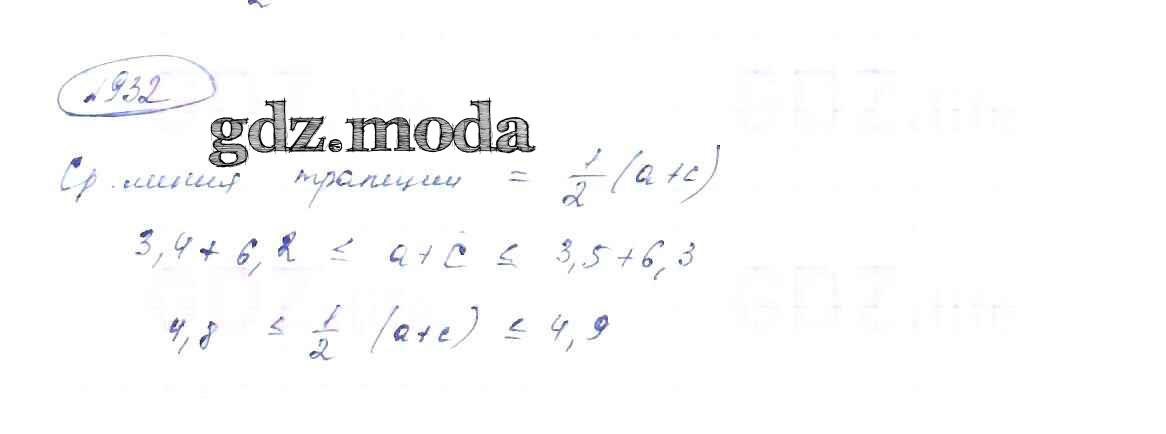 №932
gdz.moda
Ср. линия трапеции = 1/2 (a+c)
3,4+6,2 ≤ a+c ≤ 3,5+6,3
4,8 ≤ 1/2 (a+c) ≤ 4,9